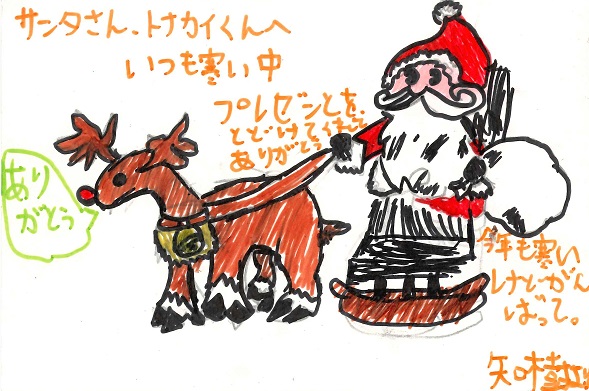 サンタさん、トナカイくんへ
いつも寒い中
プレゼンとを
とどけてくれて
ありがとう
あり
がとう
今年も寒い
がん
ばって。
知樹